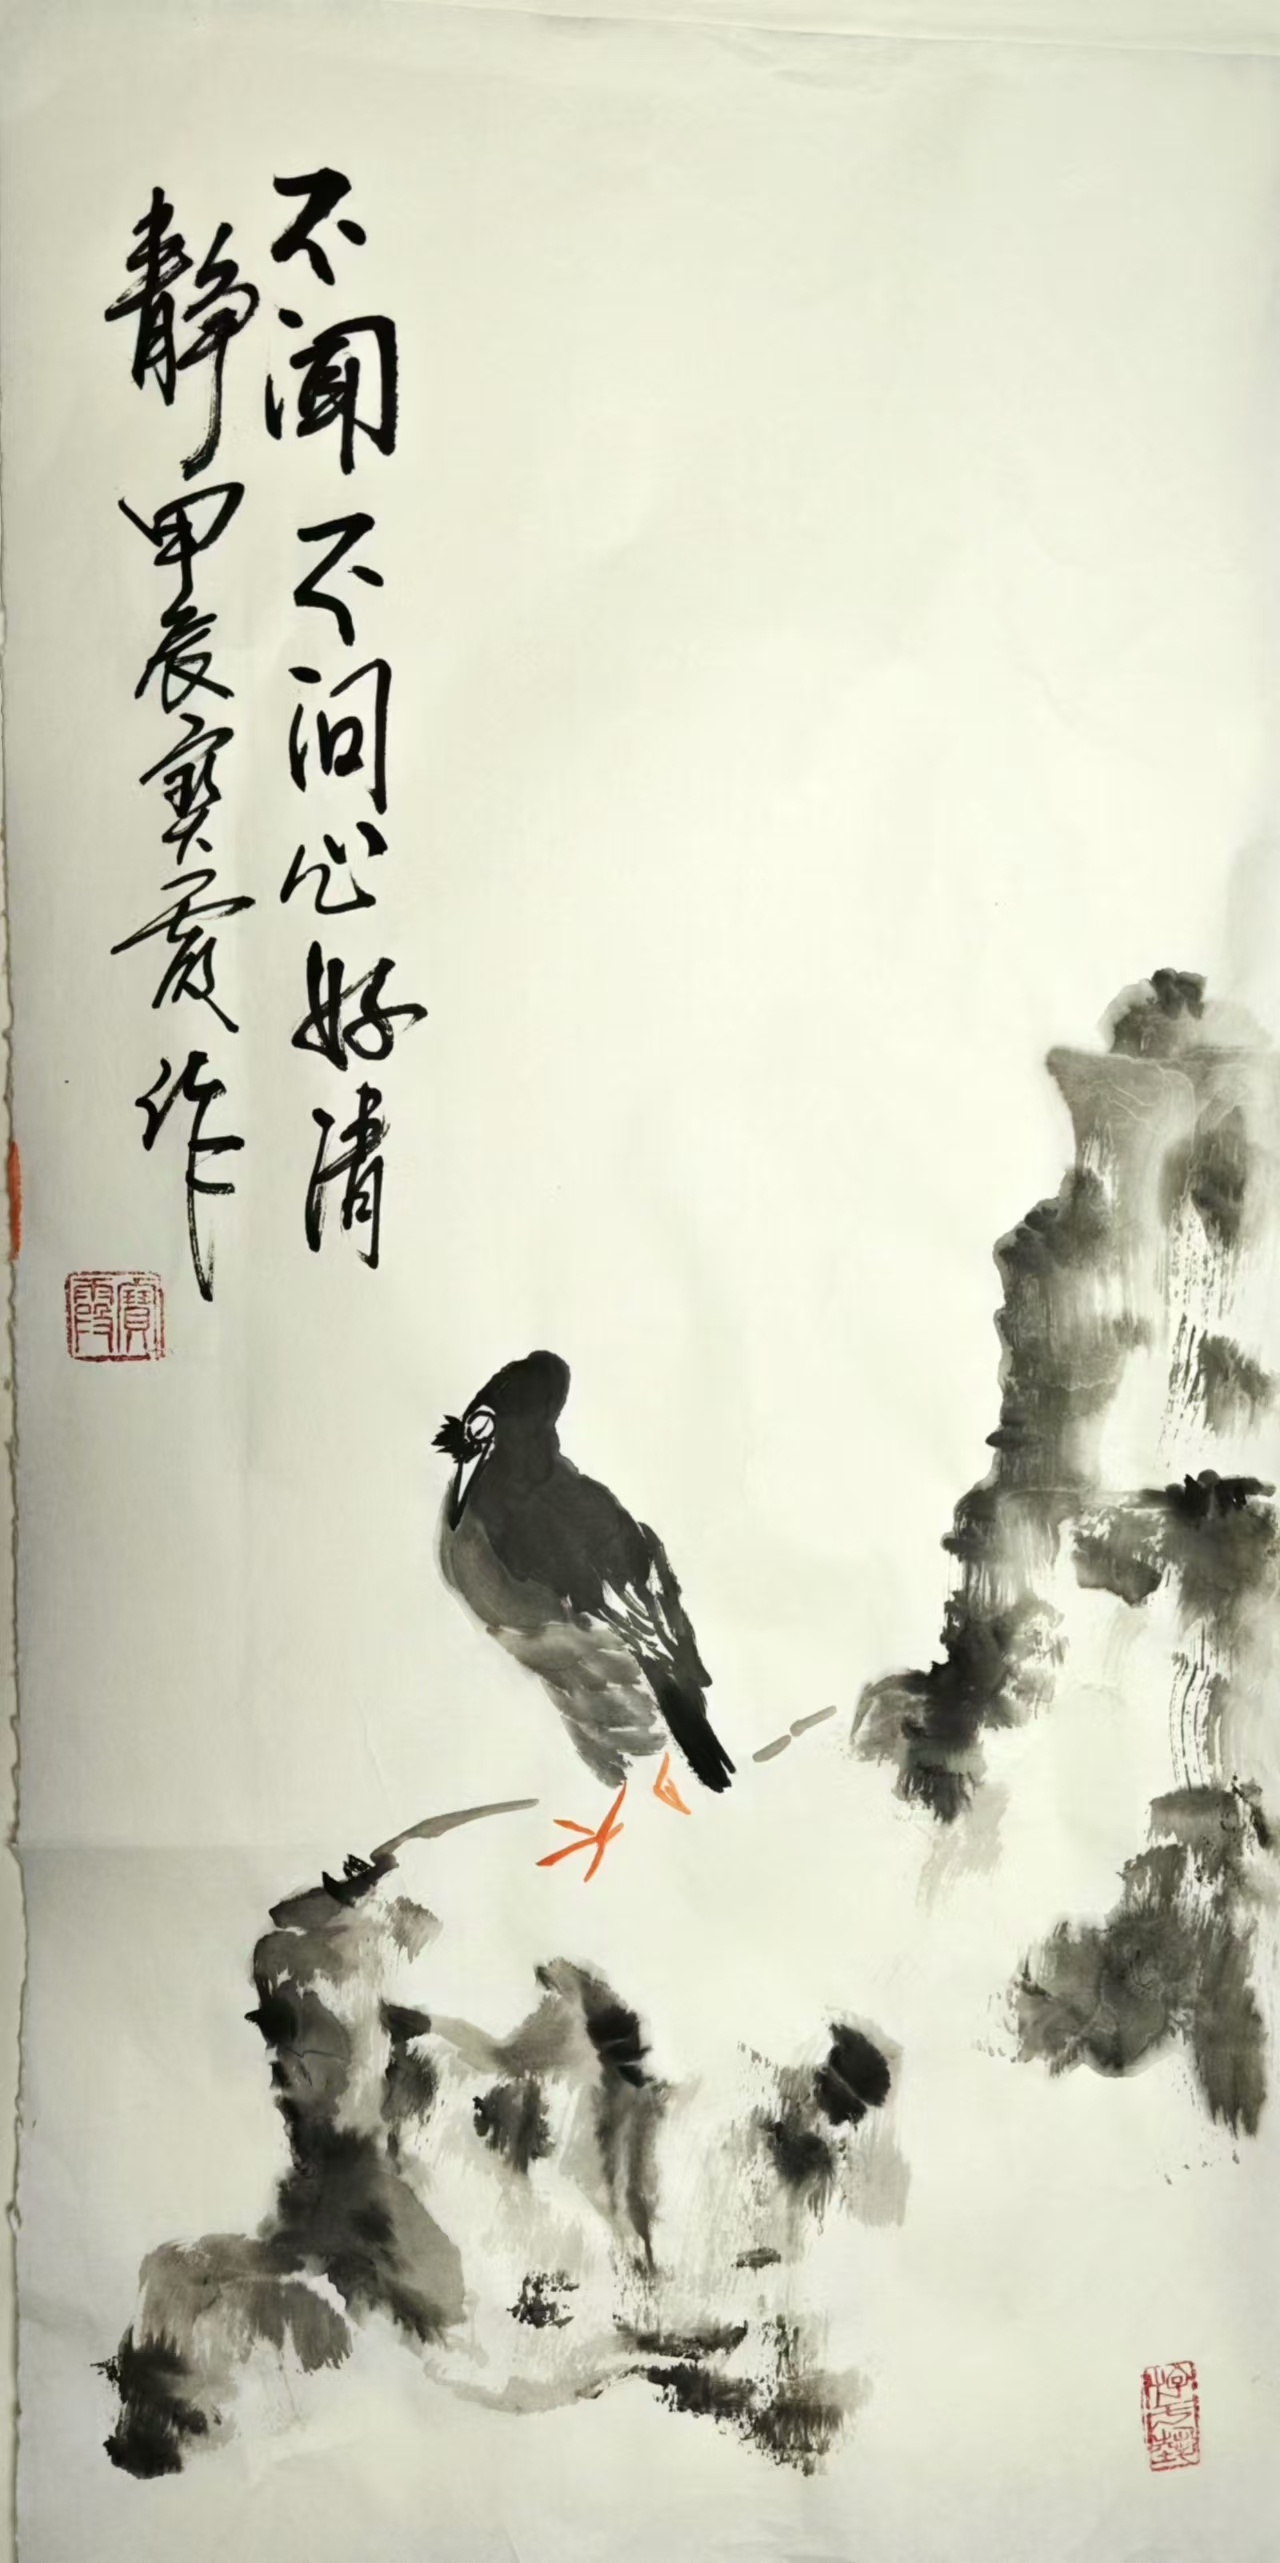 不闻不问心好清
静甲辰宝霞作
寶霞